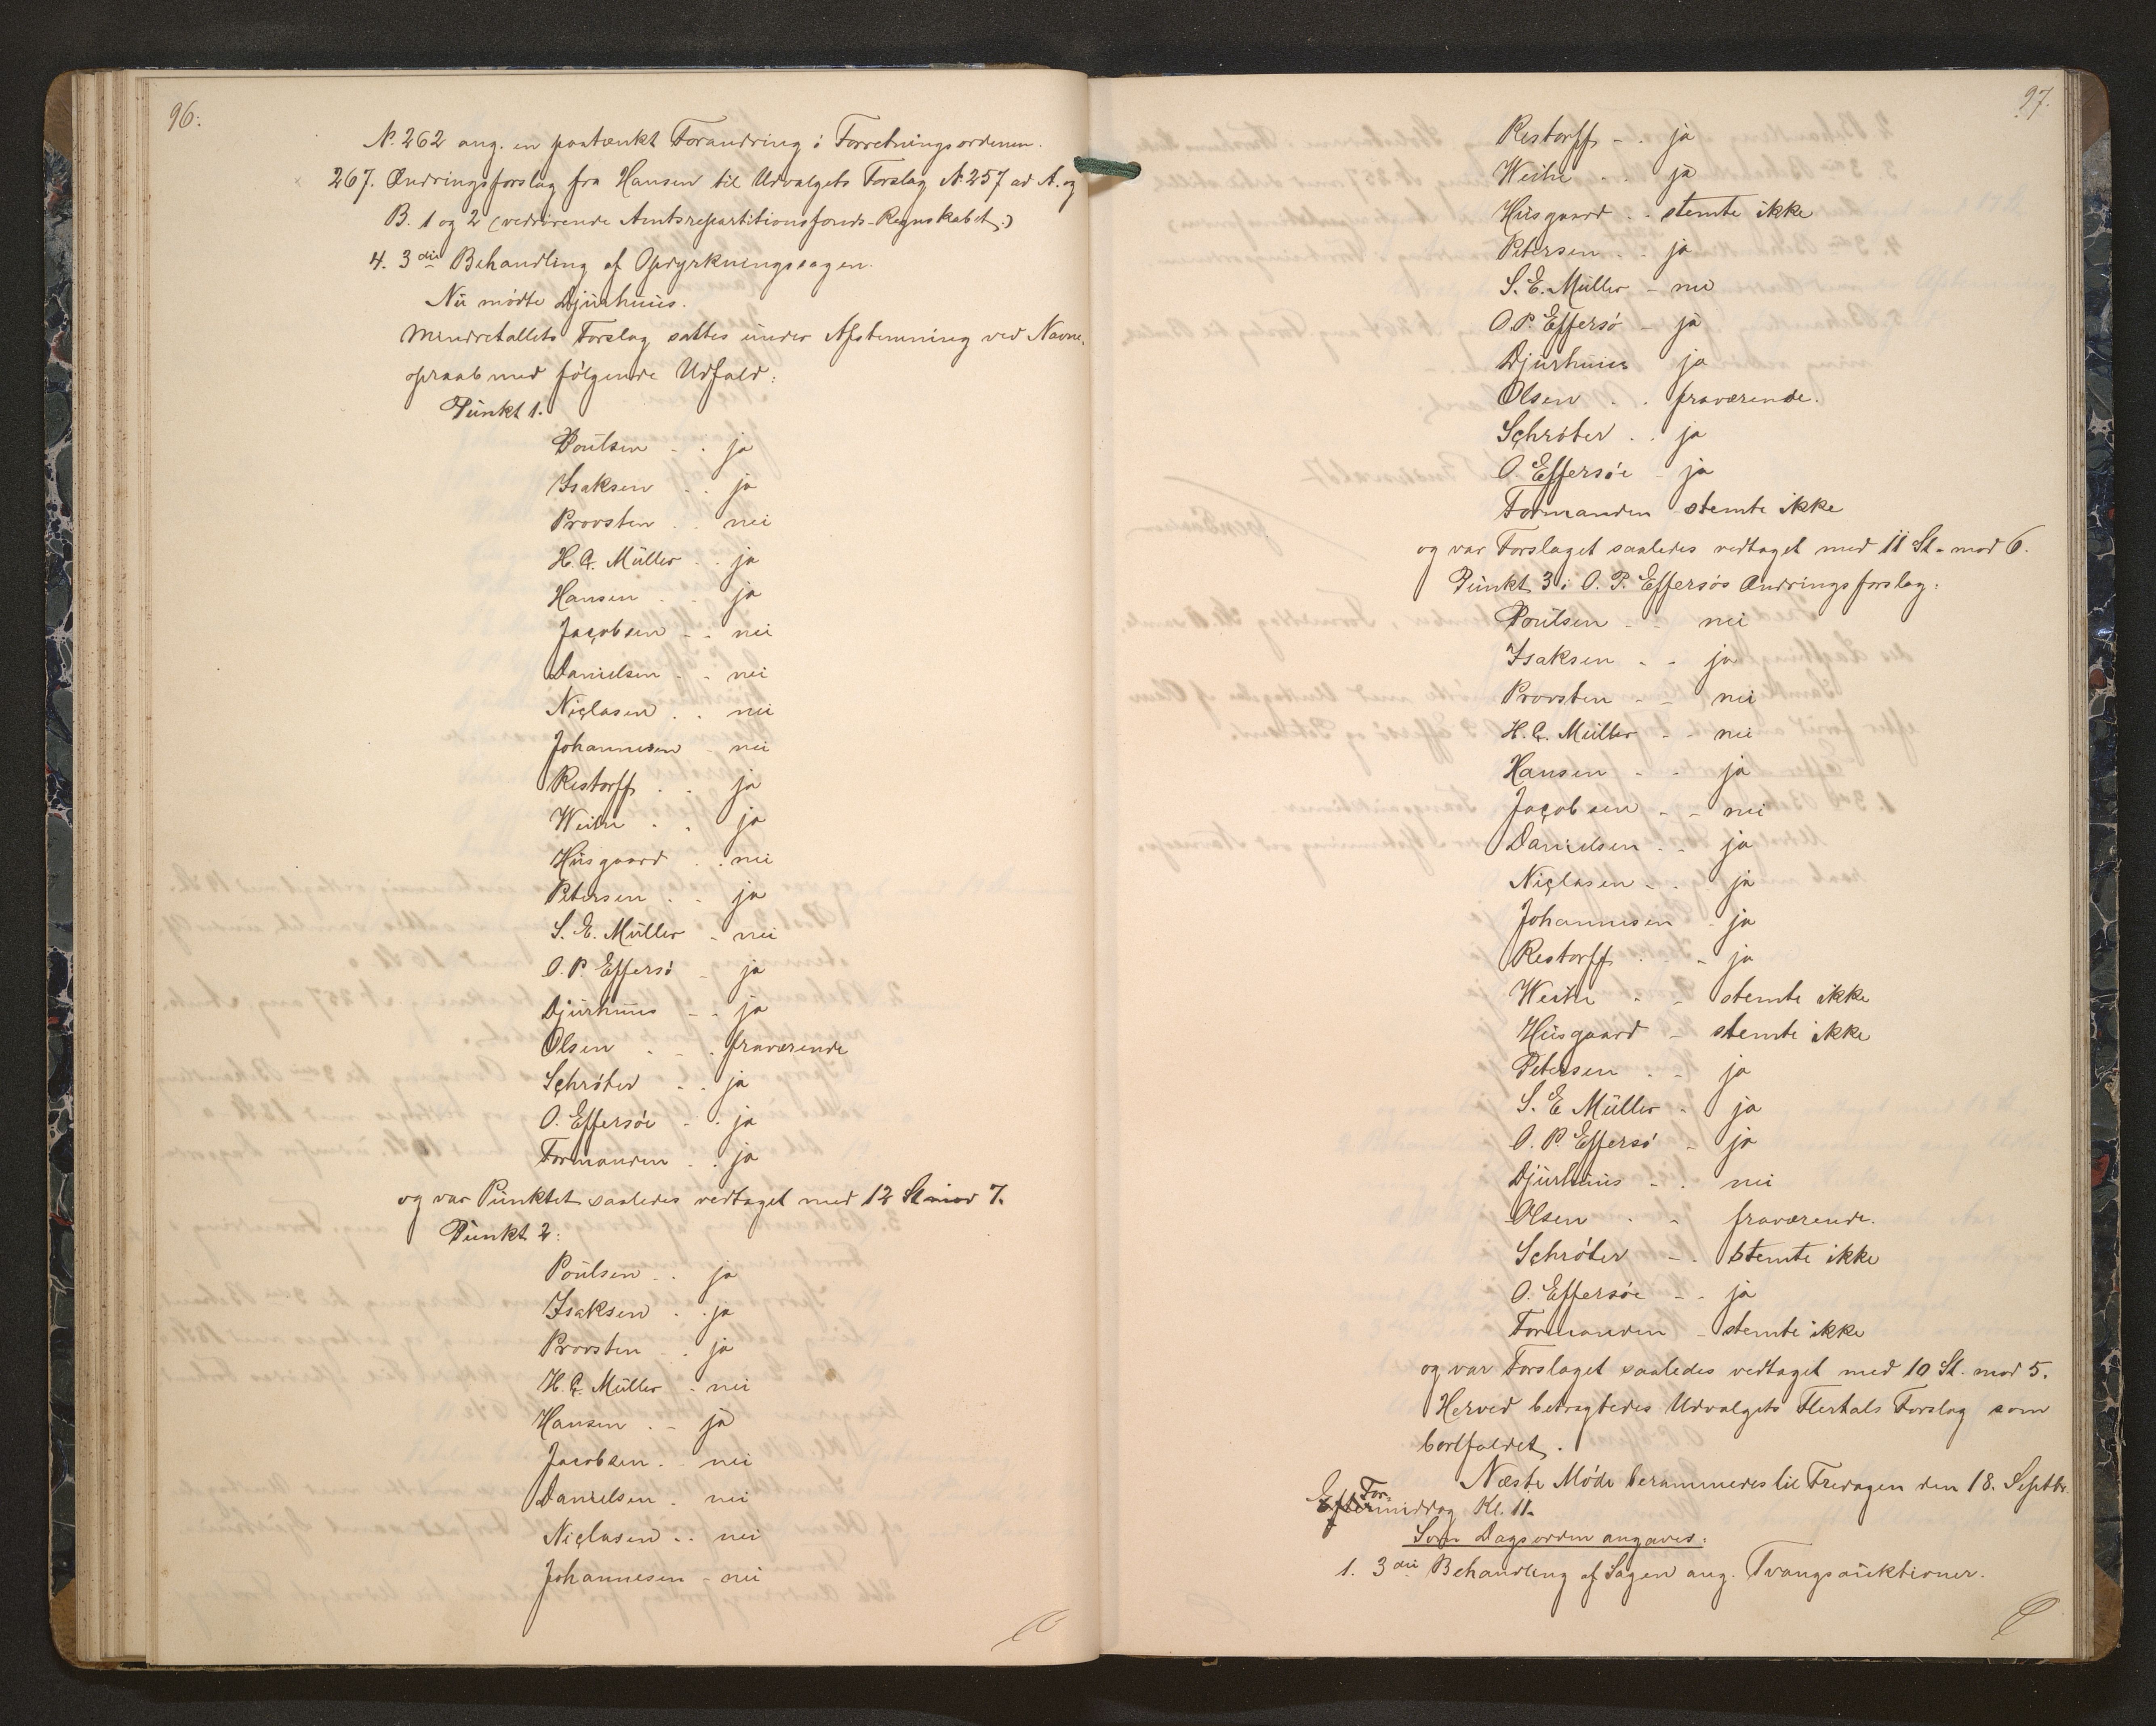 96.
No 262 ang. en paatænkt Forandring i Forretningsordenen.
267. Ændringsforslag fra Hansen til Udvalgets Forslag No 257 ad A. og
B. 1 og 2 (vedrörende Amtsrepartitionsfonds-Regnskabet.)
4. 3die Behandling af Opdyrkningssagen.
Nu mödte Djurhuus.
Mindretallets Forslag sattes under Afstemning ved Navne-
opraab med fölgende Udfald:
Punkt 1.
Poulsen - . ja
Isaksen . . ja
Provsten . . nei
H. C. Müller . . ja
Hansen . . ja
Jacobsen - . nei
Danielsen . - nei
Niclasen . . nei
Johannesen - nei
Restorff . . ja
Weihe . . ja
Husgaard . . nei
Petersen . . ja
S. E. Müller - nei
O. P. Effersö - ja
Djurhuus - . ja
Olsen . - . fraværende
Schröter . . ja
O. Effersöe - . ja
Formanden . . ja
og var Punktet saaledes vedtaget med 12 St mod 7.
Punkt 2:
Poulsen . . ja
Isaksen . . ja
Provsten . . ja
H. C. Müller . nei
Hansen . - ja
Jacobsen . . nei
Danielsen . nei
Niclasen . . nei
Johannesen - nei
97.
Restorff - . ja
Weihe . . ja
Husgaard . . stemte ikke
Petersen . . ja
S. E. Müller - nei
O. P. Effersö - ja
Djurhuus ja
Olsen . . fraværende.
Schröter . . ja
O. Effersöe - ja
Formanden stemte ikke
og var Forslaget saaledes vedtaget med 11 St. mod 6.
Punkt 3 i O. P. Effersös Ændringsforslag:
Poulsen - - nei
Isaksen - - ja
Provsten - - nei
H. C. Müller - - nei
Hansen - - ja
Jacobsen . - nei
Danielsen . . ja
Niclasen - . ja
Johannesen . ja
Restorff . - ja
Weihe . - stemte ikke
Husgaard - stemte ikke
Petersen . - ja
S. E Müller . ja
O. P. Effersö - ja
Djurhuus - . nei
Olsen . - fraværende.
Schröter - . stemte ikke
O. Effersöe - . ja
Formanden - stemte ikke
og var Forslaget saaledes vedtaget med 10 St. mod 5.
Herved betragtedes Udvalgets Flertals Forslag som
bortfaldet.
Næste Möde berammedes til Fredagen den 18. Septbr.
For-
Eftermiddag Kl. 11.
Som Dagsorden angaves:
1. 3die Behandling af Sagen ang. Tvangsauktioner.